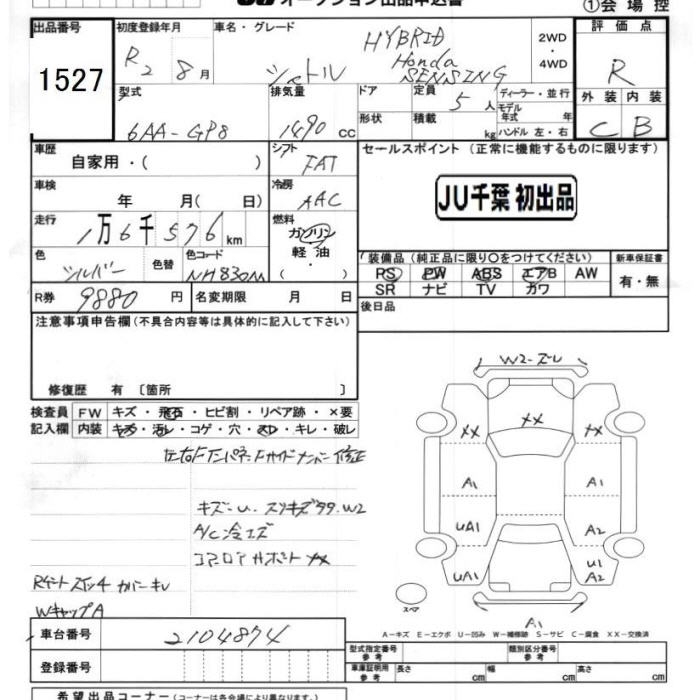 オークション出品申込書
①会場控
出品番号
1527
初度登録年月
R2 8月
車名・グレード
シャトル
HYBRID
Honda
SENSING
2WD
・
4WD
評価点
R
外装 内装
C B
型式
6AA-GP8
排気量
1490 cc
ドア
形状
定員
5人
積載
kg
ディーラー・並行
モデル
年式 年
ハンドル 左・右
車歴
自家用・( )
シフト
FAT
車検
年 月( 日)
冷房
AAC
走行
1万6千576km
燃料
ガソリン
軽油
・
( )
色
シルバー
色替
色コード
NH830M
R券
9880円
名変期限 月 日
セールスポイント(正常に機能するものに限ります)
JU千葉 初出品
装備品(純正品に限り○をつけてください)
PS PW ABS エアB AW
SR ナビ TV カワ
新車保証書
有・無
後日品
注意事項申告欄(不具合内容等は具体的に記入して下さい)
修復歴 有〔箇所 〕
検査員
記入欄
FW キズ・飛石・ヒビ割・リペア跡・×要
内装 キズ・汚レ・コゲ・穴・スレ・キレ・破レ
左右Fインパネ、Fサイドメンバー修正
キズ-U、スリキズ
W2
A/C冷エズ
コアロアサポートXX
Rゲートスイッチカバーキレ
WキャップA
W2-ズレ
XX
XX XX
A1 A1
UA1 A2
UA1 U1
A2
スペア
A1
A-キズ E-エクボ U-凹み W-補修跡 S-サビ C-腐食 XX-交換済
車台番号
2104874
登録番号
型式指定番号
参考
類別区分番号
参考
車庫証明用
参考
長さ cm
幅 cm
高さ cm
希望出品コーナー(コーナーは各会場により異なります。)